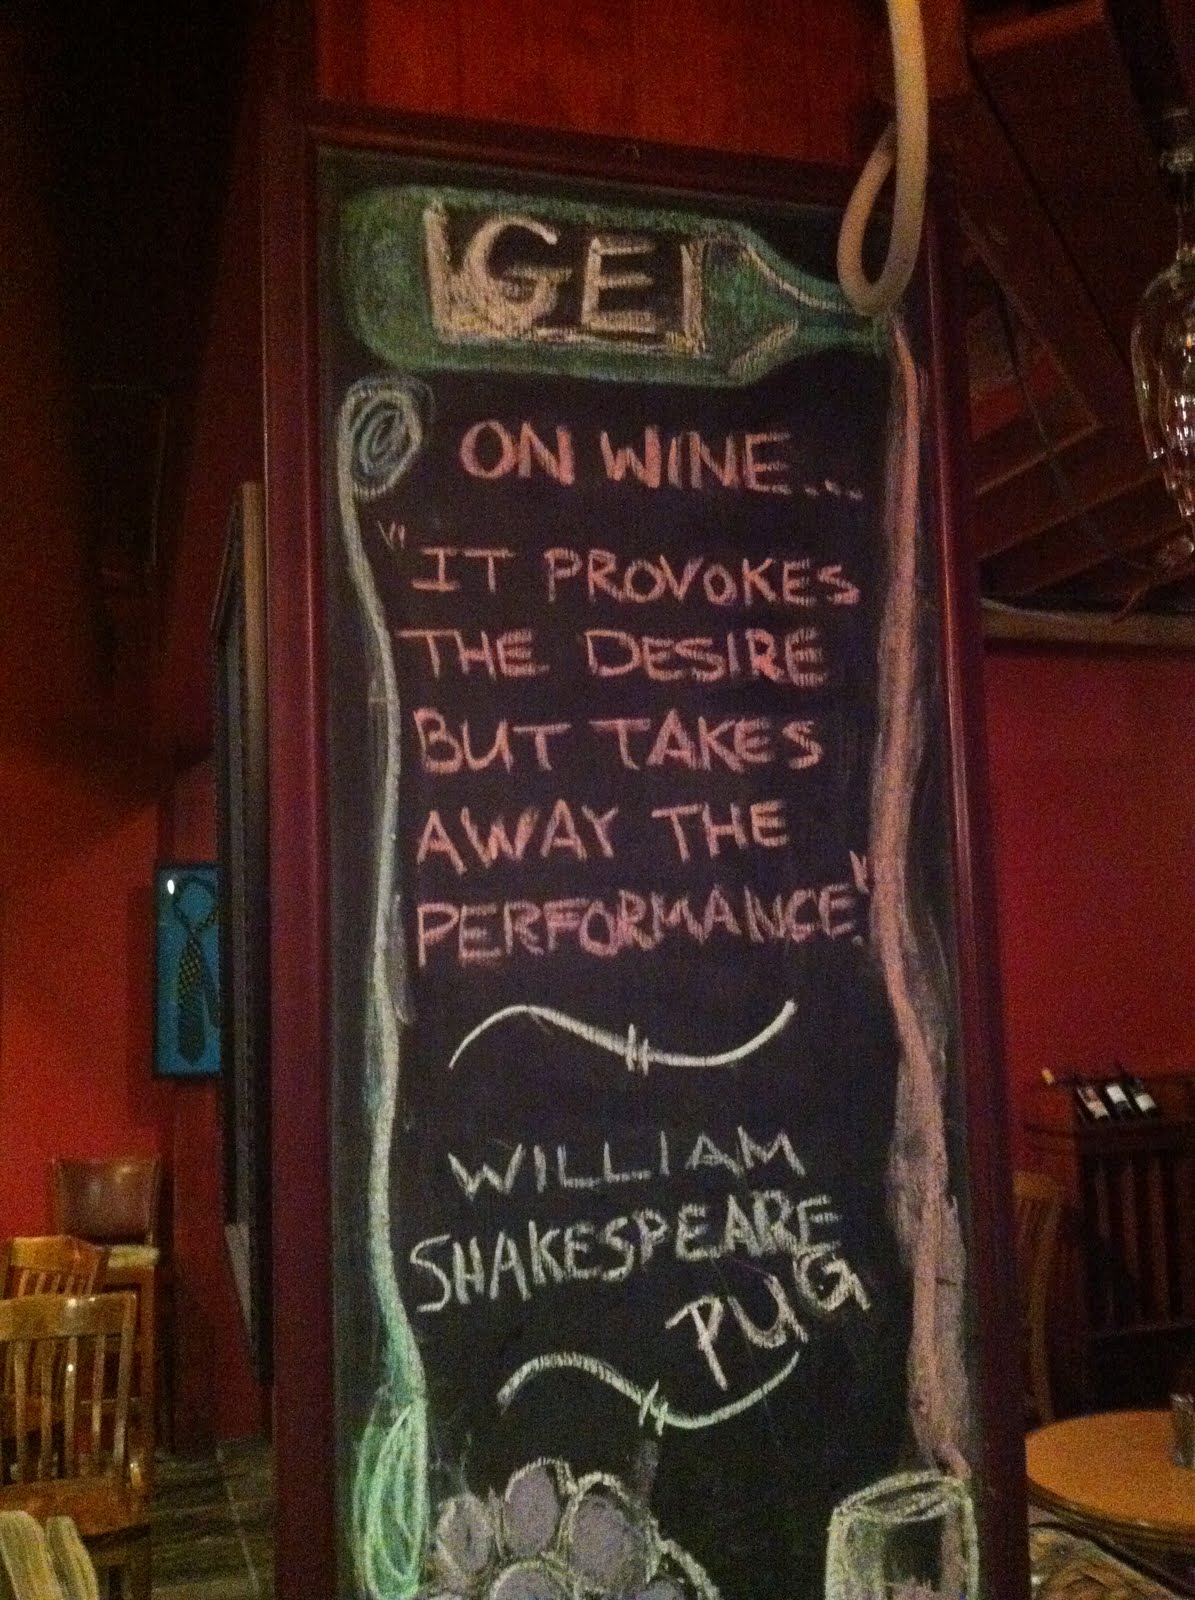 GEI
ON WINE...
"IT PROVOKES
THE DESIRE
BUT TAKES
AWAY THE
PERFORMANCE."
WILLIAM
SHAKESPEARE
PUG